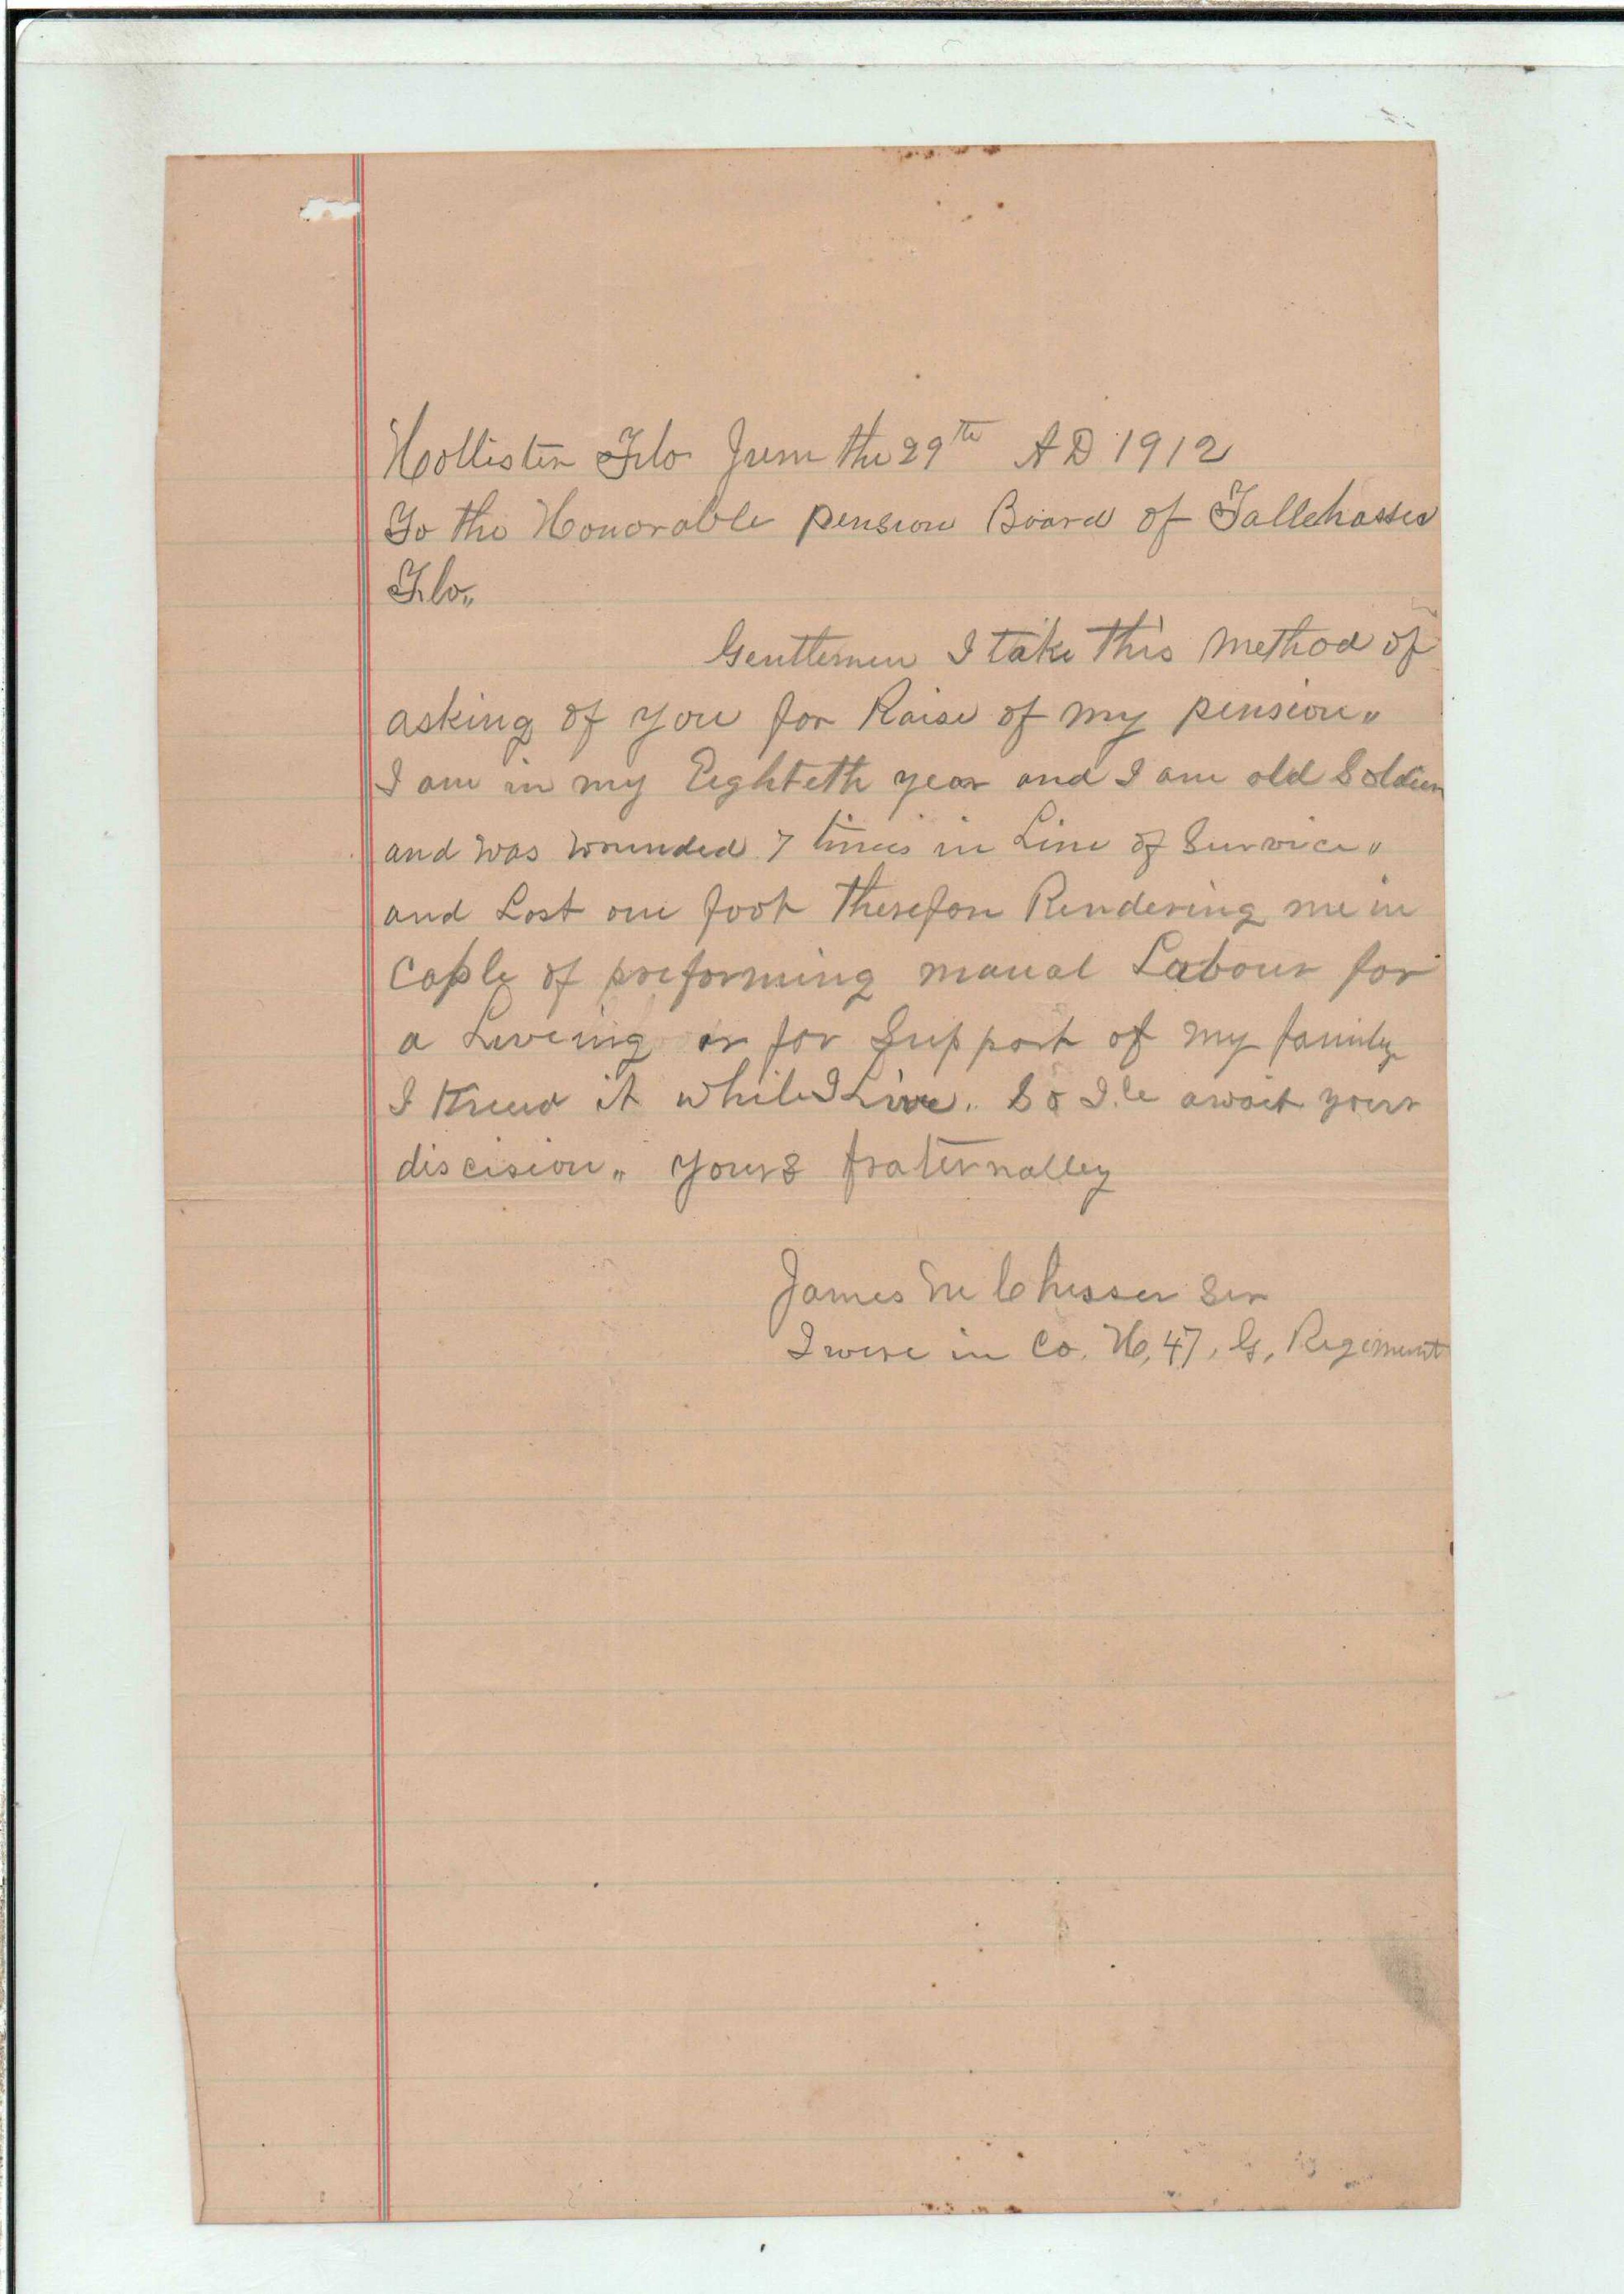 Hollister Fla June the 29th AD 1912
To the Honorable pension Board of Tallehassee
Fla,,
Gentlemen I take this method of
asking of you for Raise of my pension,,
I am in my Eighteth year and I am old Soldier
and was wounded 7 times in Line of Survice,,
and Lost one foot Therefore Rendering me in
Caple of preforming manual Labour for
a Liveing or for Support of my family
I it while I Live. So I.le await your
discision,, yours fraternalley
James M Chesser Ser
I were in Co. H, 47, G, Regiment